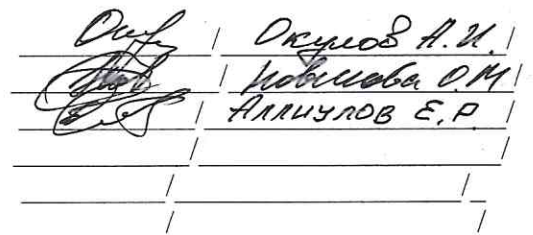 / Окулов А.И. /
/ Новикова О.М /
/ Аллиулов Е.Р. /
/ /
/ /
/ /